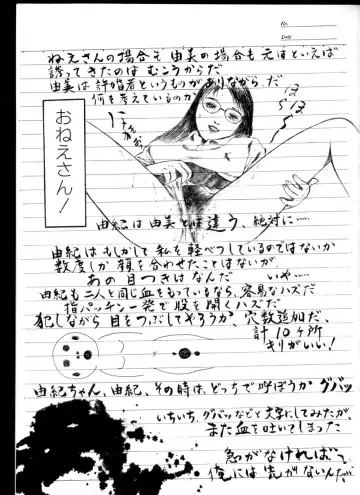 No.
Date
ねえさんの場合も由美の場合も元はといえば
誘ってきたのはむこうからだ
由美は許婚者というものがありながら、だ
何を考えているのか
おねえさん!
由紀は由美とは違う、絶対に……
由紀はもしかして私を軽べつしているのではないか
数度しか顔を合わせたことはないが
あの目つきはなんだ いや……
由紀も二人と同じ血をもっているなら、容易なハズだ
指パッチン一発で股を開くハズだ
犯しながら目をつぶしてやろうか、穴数追加だ、
計10ヶ所
きりがいい!
由紀ちゃん、由紀、その時は、どっちで呼ぼうか グバッ
いちいち、グバッなどと文字にしてみたが、
また血を吐いてしまった
急がなければ
俺には先がないんだ